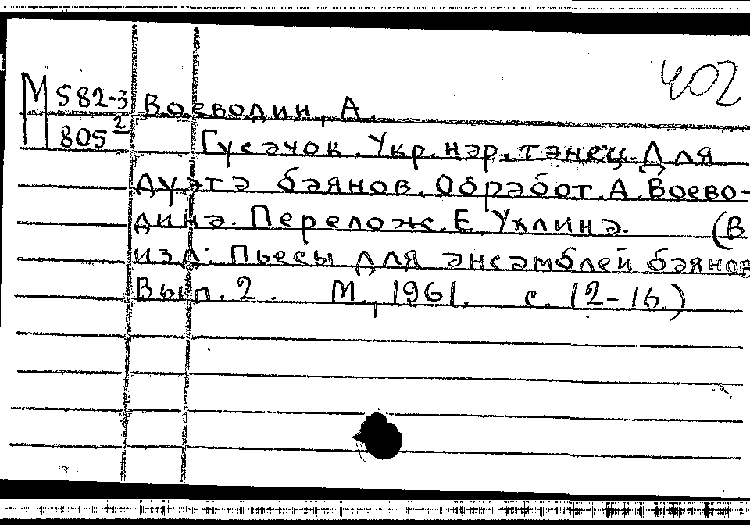 402
М 582-3 Воеводин, А.
805² Гусачок. Укр. нар. танец. Для
дуэта баянов. Обработ. А. Воево-
дина. Перелож. Е. Ухлина. (В
изд: Пьесы для ансамблей баянов
Вып. 2. М., 1961. с. 12-16.)